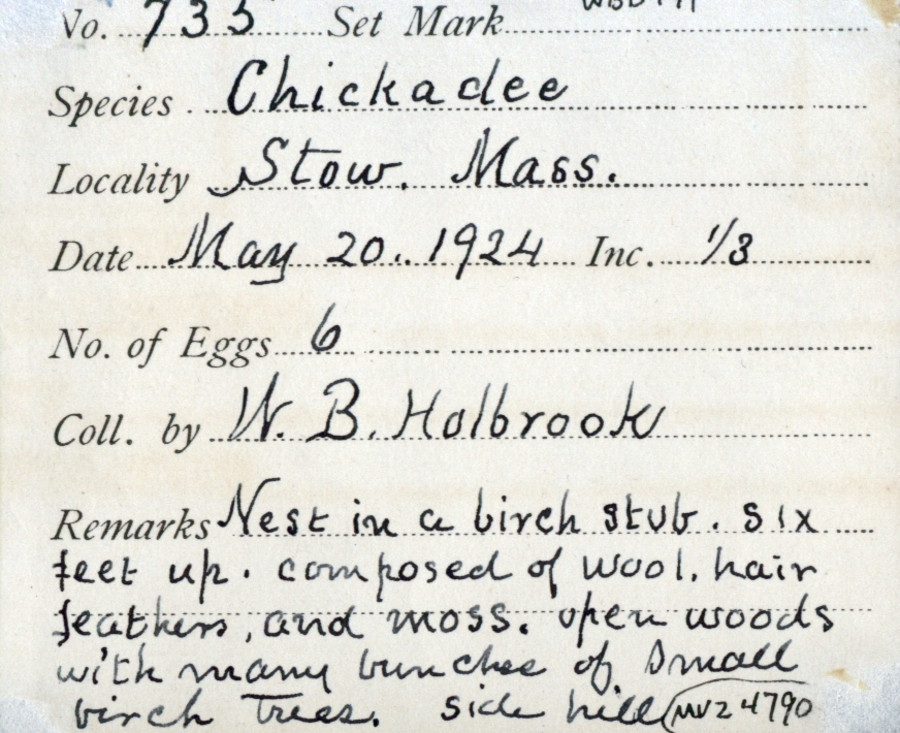 No. 735 Set Mark
Species Chickadee
Locality Stow. Mass.
Date May 20.. 1924 Inc. 1/3
No. of Eggs 6
Coll. by W. B. Holbrook
Remarks Nest in a birch stub. six
feet up. composed of wool, hair
feathers, and moss. open woods
with many bunches of small
birch trees. side hill
MVZ 4790